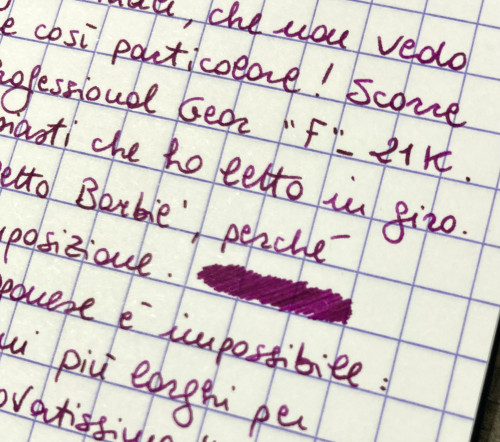 che non vedo
e così particolare! Scorre
rofessional Gear "F" - 21K.
masti che ho letto in giro.
etto Barbie", perché
posizione.
ponese è impossibile:
ui più larghi per
ovatissimo